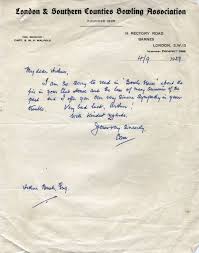 London & Southern Counties Bowling Association
HON. SECRETARY
CAPT. S.
11 RECTORY ROAD
BARNES
LONDON, S.W.13
My dear Arthur,
I am so sorry to read in "Bowls News" about the
fire in your Club house and the loss of many souvenirs of the
past and I offer you our very sincere sympathy in your
trouble. Very bad luck, Arthur!
With kindest regards,
Yours very sincerely
Arthur Esq.